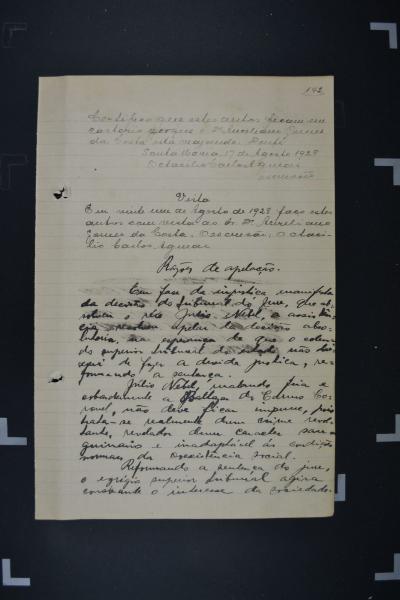 142
Certifico que estes autos ficam em
cartorio porque o Dr Aureliano Gomes
da Costa está
Santa Maria, 17 de Agosto 1928
Octacilio Carlos Aguiar
escrivão
Vista
Em vinte um de Agosto de 1928 faço estes
autos com vista ao Sr. Dr. Aureliano
Gomes da Costa. O escrivão, Octaci-
lio Carlos Aguiar
Razões de apelação.
Em face da injustiça manifesta
da decisão do Tribunal do Jury, que ab-
solveu o réu Julio Nebl, a assisten-
cia apelar da decisão abso-
lutoria, na esperança de que o colen-
do superior tribunal do estado não dei-
xará de fazer a devida justiça, re-
formando a sentença.
Julio Nebl, matando fria e
covardemente a de Cor-
onel, não deve ficar impune, pois
trata-se realmente dum crime revol-
tante, revelador dum caracter san-
guinario e inadaptavel ás condições
normais da coexistência social.
Reformando a sentença do jury,
o egregio superior tribunal agirá
consoante o interesse da sociedade